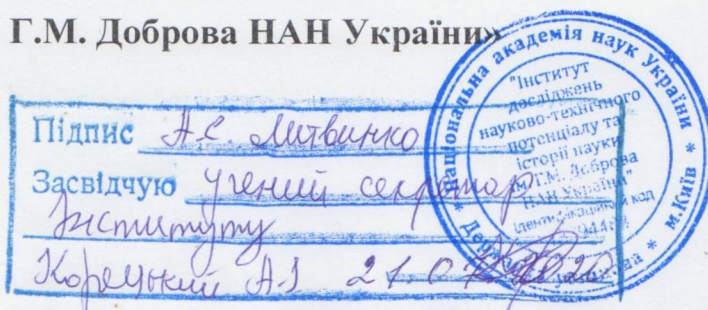 Г.М. Доброва НАН України»
Підпис А.С. Литвинко
Засвідчую учений секретар
Інституту
Корецький А.Я 21.0
Національна академія наук України * м.Київ *
"Інститут
досліджень
науково-технічного
потенціалу та
історії науки
ім. Г.М. Доброва
НАН України"
Ідентифікаційний код